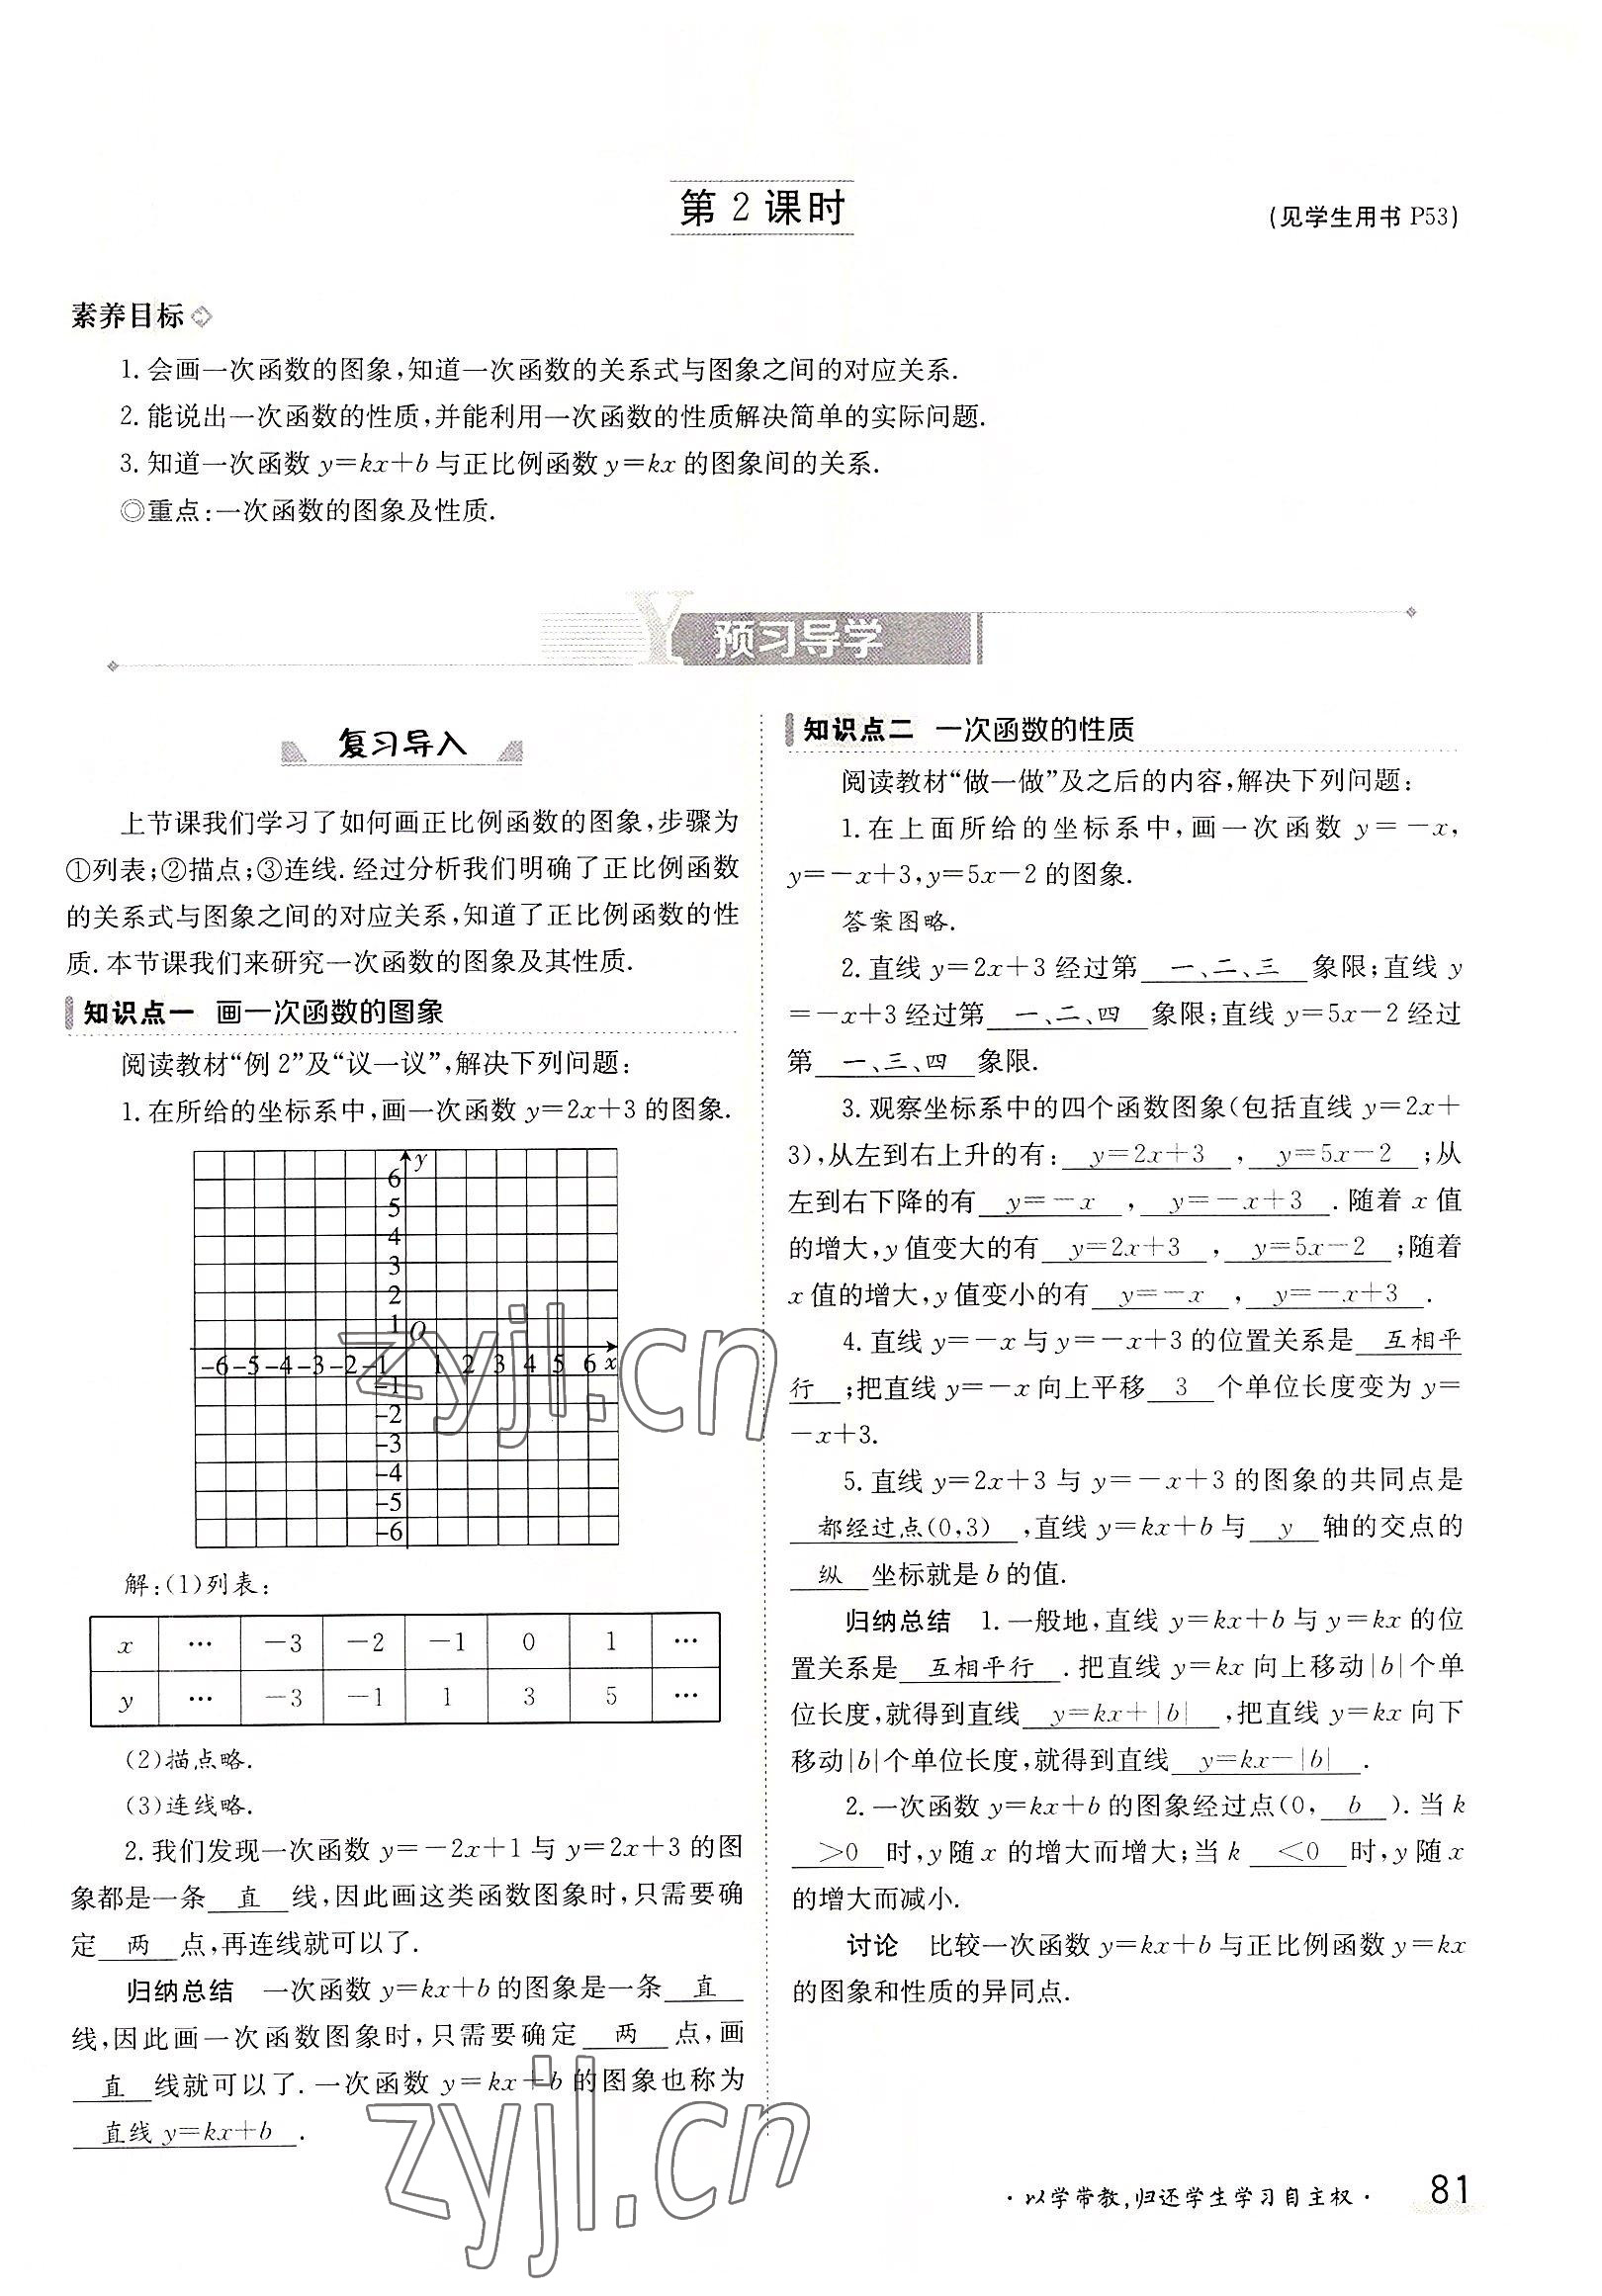 第 2 课时
(见学生用书 P53)
素养目标
1. 会画一次函数的图象,知道一次函数的关系式与图象之间的对应关系.
2. 能说出一次函数的性质,并能利用一次函数的性质解决简单的实际问题.
3. 知道一次函数 y=kx+b 与正比例函数 y=kx 的图象间的关系.
◎重点:一次函数的图象及性质.
Y 预习导学
复习导入
上节课我们学习了如何画正比例函数的图象,步骤为
①列表;②描点;③连线. 经过分析我们明确了正比例函数
的关系式与图象之间的对应关系,知道了正比例函数的性
质. 本节课我们来研究一次函数的图象及其性质.
知识点一 画一次函数的图象
阅读教材“例 2”及“议一议”,解决下列问题:
1. 在所给的坐标系中,画一次函数 y=2x+3 的图象.
y
6
5
4
3
2
1
O
-6 -5 -4 -3 -2 -1 1 2 3 4 5 6 x
-1
-2
-3
-4
-5
-6
解:(1)列表:
x … -3 -2 -1 0 1 …
y … -3 -1 1 3 5 …
(2)描点略.
(3)连线略.
2. 我们发现一次函数 y=-2x+1 与 y=2x+3 的图
象都是一条 直 线,因此画这类函数图象时,只需要确
定 两 点,再连线就可以了.
归纳总结 一次函数 y=kx+b 的图象是一条 直
线,因此画一次函数图象时,只需要确定 两 点,画
直 线就可以了. 一次函数 y=kx+b 的图象也称为
直线 y=kx+b .
知识点二 一次函数的性质
阅读教材“做一做”及之后的内容,解决下列问题:
1. 在上面所给的坐标系中,画一次函数 y=-x,
y=-x+3,y=5x-2 的图象.
答案图略.
2. 直线 y=2x+3 经过第 一、二、三 象限;直线 y
=-x+3 经过第 一、二、四 象限;直线 y=5x-2 经过
第 一、三、四 象限.
3. 观察坐标系中的四个函数图象(包括直线 y=2x+
3),从左到右上升的有: y=2x+3 , y=5x-2 ;从
左到右下降的有 y=-x , y=-x+3 . 随着 x 值
的增大,y 值变大的有 y=2x+3 , y=5x-2 ;随着
x 值的增大,y 值变小的有 y=-x , y=-x+3 .
4. 直线 y=-x 与 y=-x+3 的位置关系是 互相平
行 ;把直线 y=-x 向上平移 3 个单位长度变为 y=
-x+3.
5. 直线 y=2x+3 与 y=-x+3 的图象的共同点是
都经过点(0,3) ,直线 y=kx+b 与 y 轴的交点的
纵 坐标就是 b 的值.
归纳总结 1. 一般地,直线 y=kx+b 与 y=kx 的位
置关系是 互相平行 . 把直线 y=kx 向上移动|b|个单
位长度,就得到直线 y=kx+|b| ,把直线 y=kx 向下
移动|b|个单位长度,就得到直线 y=kx-|b| .
2. 一次函数 y=kx+b 的图象经过点(0, b ). 当 k
>0 时,y 随 x 的增大而增大;当 k <0 时,y 随 x
的增大而减小.
讨论 比较一次函数 y=kx+b 与正比例函数 y=kx
的图象和性质的异同点.
zyjl.cn
zyjl.cn
·以学带教,归还学生学习自主权·
81